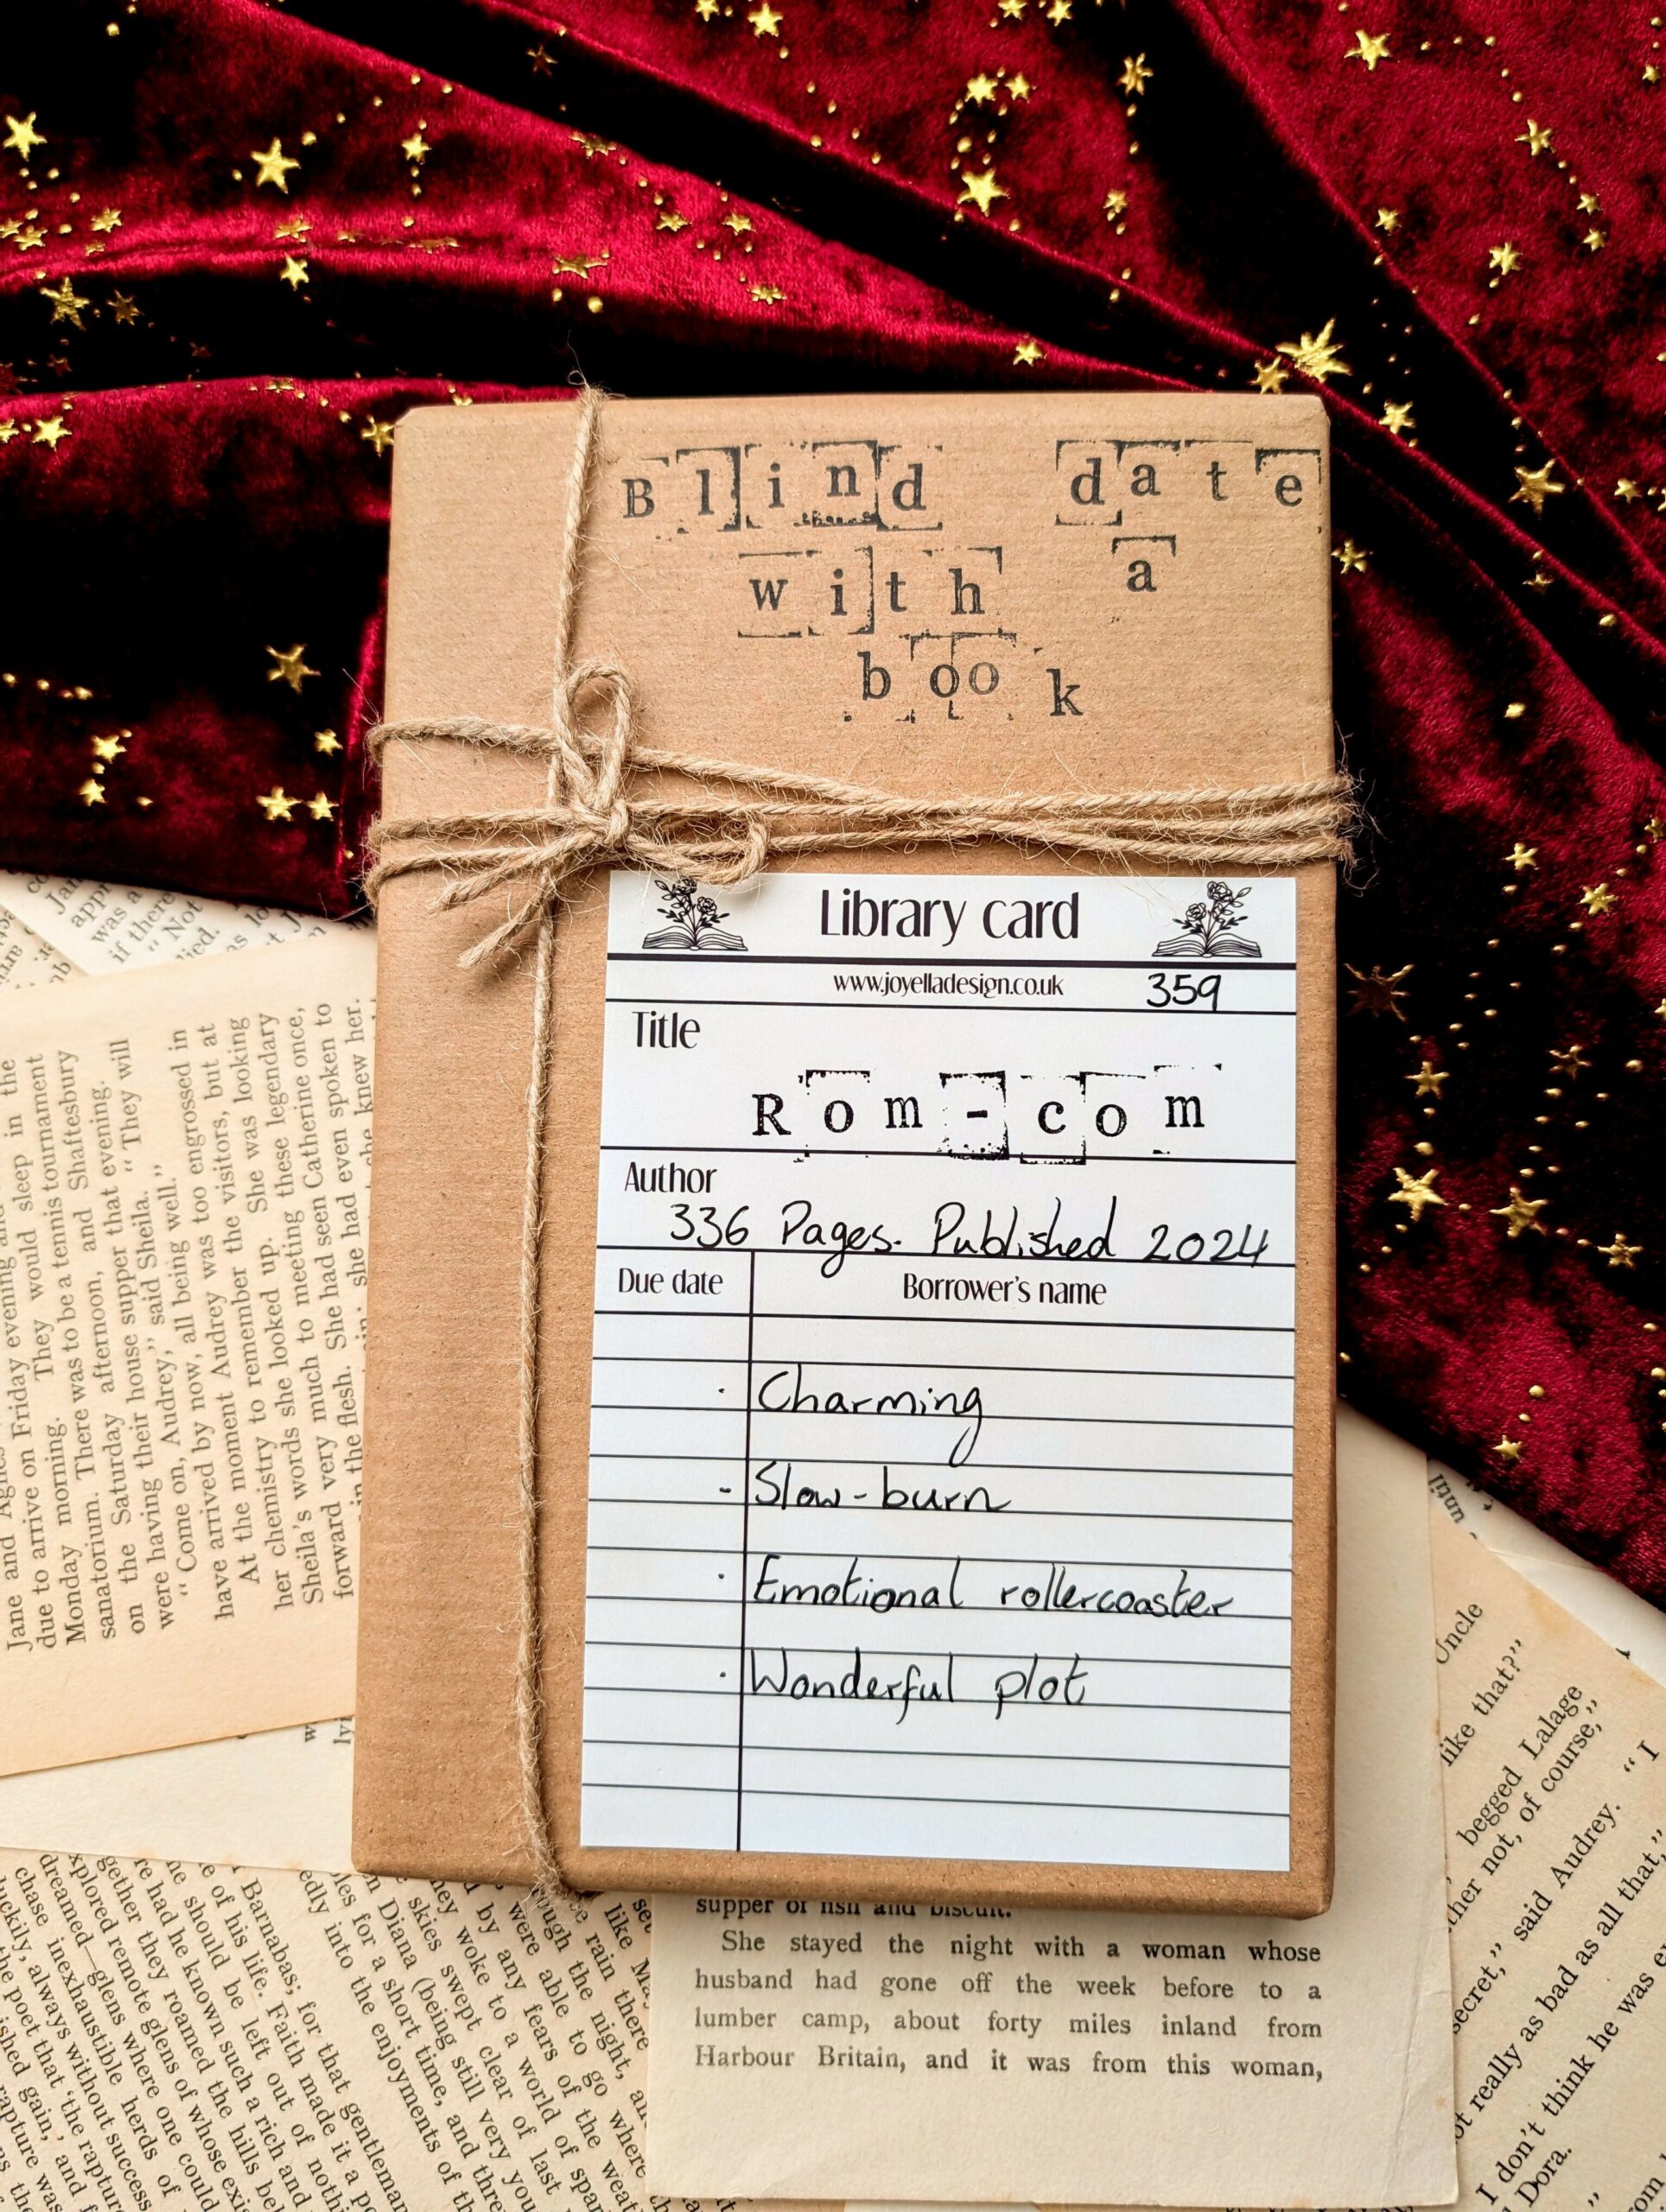 Blind date
with a
book
Library card
www.joyelladesign.co.uk 359
Title
Rom-com
Author
336 Pages. Published 2024
Due date Borrower's name
· Charming
- Slow-burn
· Emotional rollercoaster
· Wonderful plot
Jane and
due to arrive on Friday evening
Monday morning. They would sleep in the
sanatorium. There was to be a tennis tournament
on the Saturday afternoon, and Shaftesbury
were having their house supper that evening.
“Come on, Audrey,” said Sheila. “They will
have arrived by now, all being well.”
At the moment Audrey was too engrossed in
her chemistry to remember the visitors, but at
Sheila's words she looked up. She was looking
forward very much to meeting these legendary
in the flesh. She had seen Catherine once,
she had even spoken to
she knew her.
supper of fish and biscuit.
She stayed the night with a woman whose
husband had gone off the week before to a
lumber camp, about forty miles inland from
Harbour Britain, and it was from this woman,
Uncle
like that?”
begged Lalage
not, of course,”
secret,” said Audrey. “I
really as bad as all that,”
I don't think he was
Dora.
Barnabas; for that gentleman
of his life. Faith made it a
should be left out of
had he known such a rich and
gether they roamed the hills
remote glens of whose
dreamed—glens where one could
chase inexhaustible herds of
always without success
the poet that 'the rapture
gain,' and
rapture